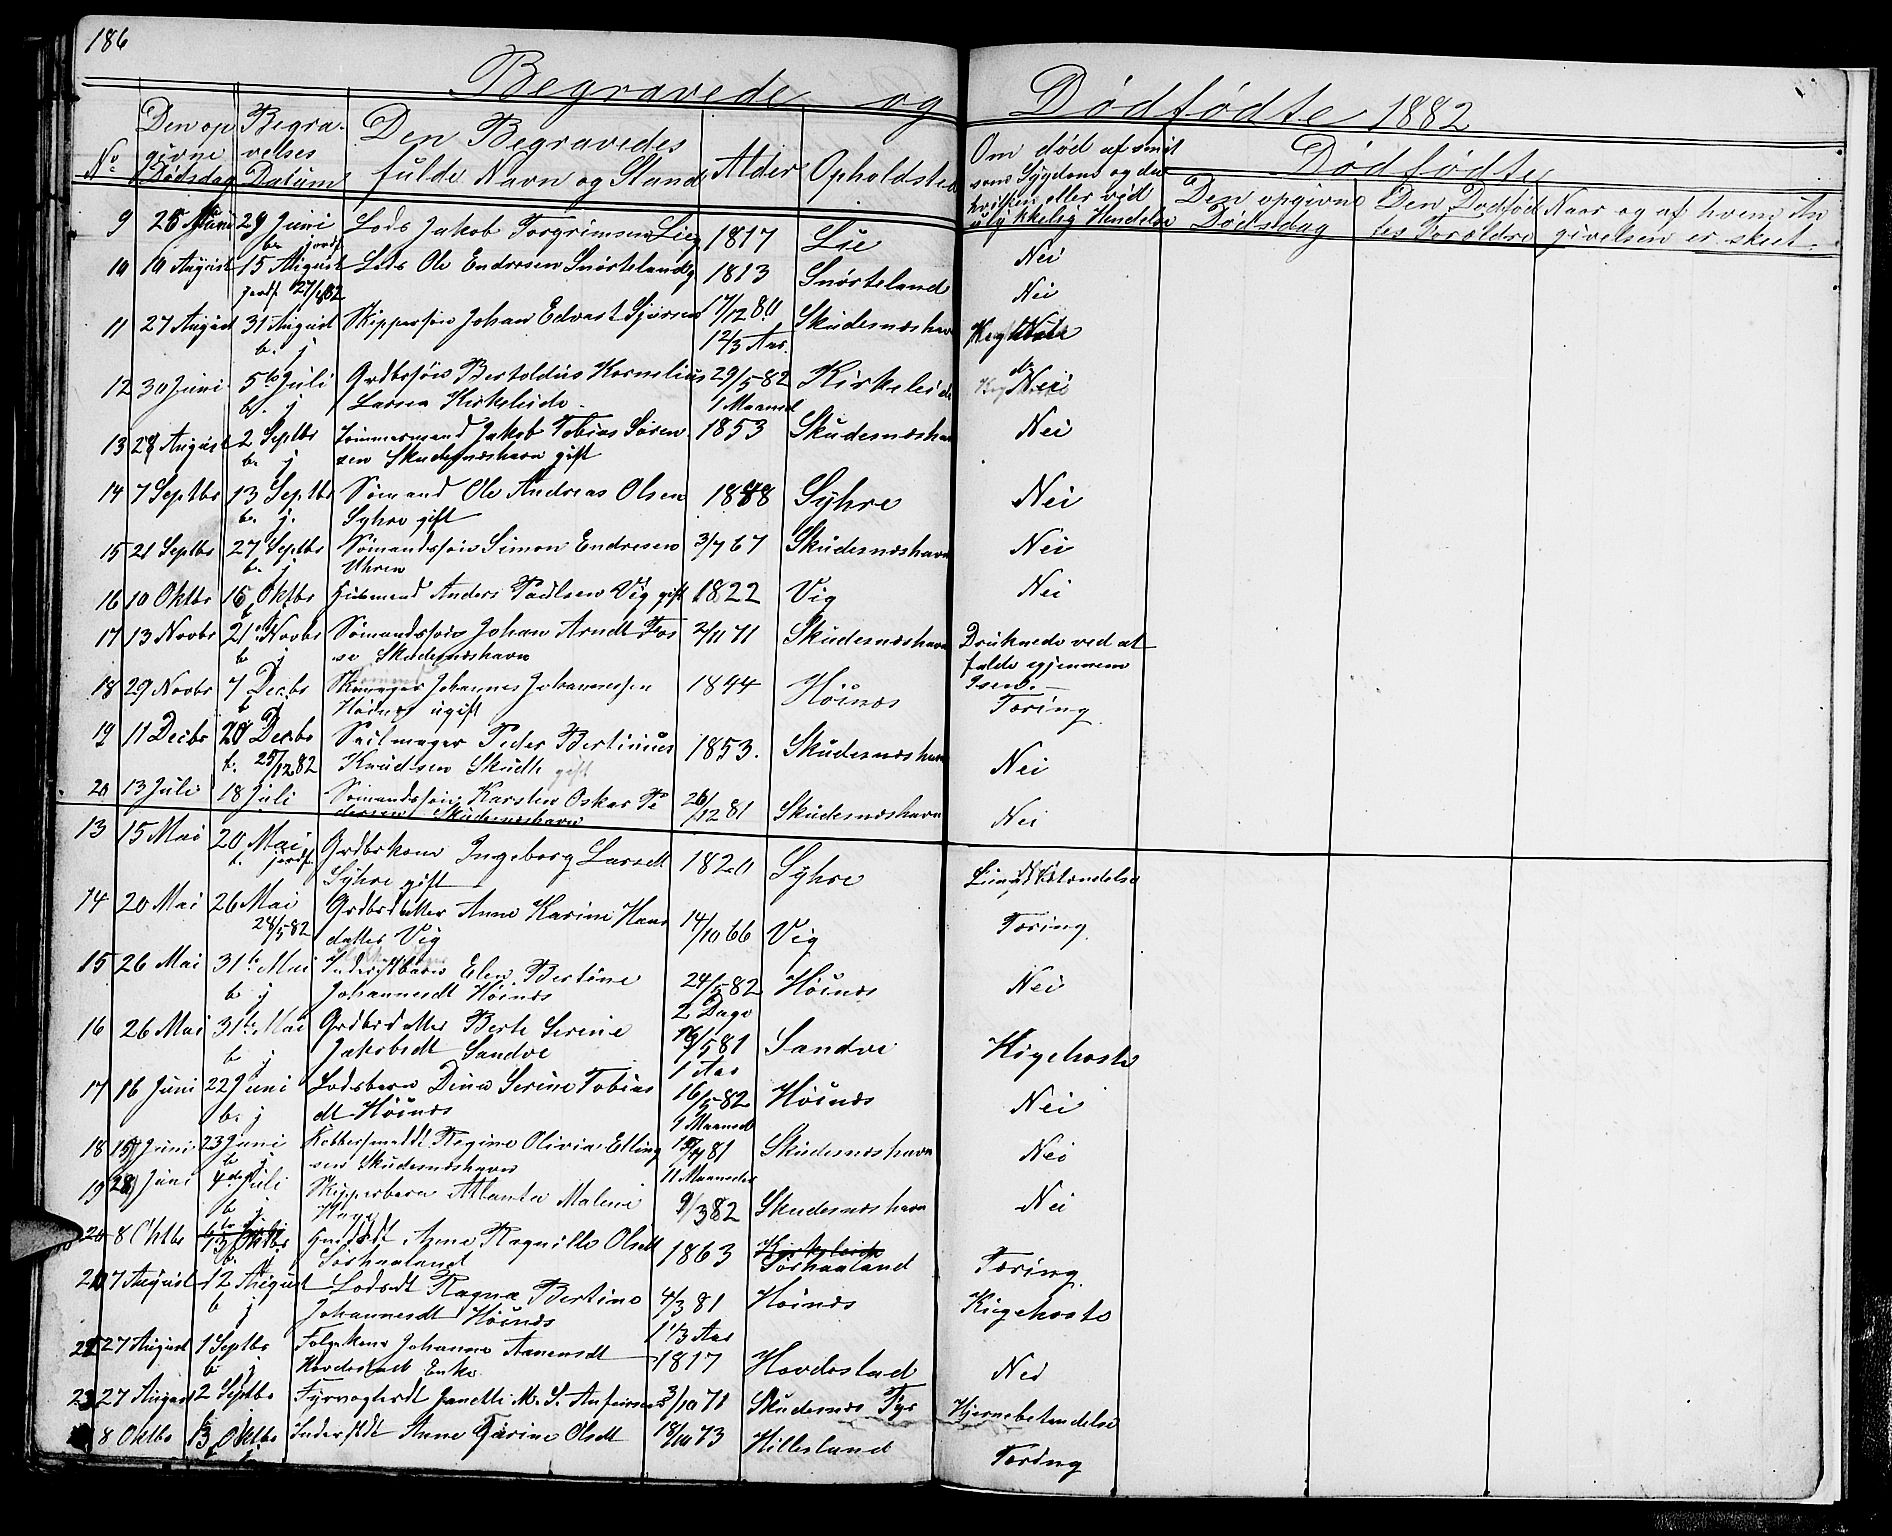 186
Begravede og Dødfødte 1882
No. Den op givne Dødsdag Begra- velses Datum Den Begravedes fulde Navn og Stand Alder Opholdsted Om død af smit som Sygdom og der hvilken eller ved ulykkelig Hendelse Dødfødte
Den opgivne Dødsdag Den Dødfød tes Forældre Naar og af hvem An givelsen er skeet.
9 25 Juni 29 Juni Lods Jakob Torgrimsen Lie g 1817 Lie Nei
b. jordf.
10 10 August 15 August Lods Ole Endresen Snørteland g 1813 Snørteland Nei
jordf. 27/8 82
11 27 August 31 August Skippersøn Johan Edvart Sjursen 17/12 80 Skudesneshavn
b. j 1 2/3 Aar.
12 30 Juni 5te Juli Grdbrsøn Bertoldus Kornelius 29/5 82 Kirkeleide Nei
b. j Larsen Kirkeleide 1 Maaned
13 28 August 2 Septbr Tømmermand Jakob Tobias Søren 1853 Skudesneshavn Nei
b. j sen Skudesneshavn gift
14 7 Septbr 13 Septbr Sømand Ole Andreas Olsen 1848 Syhre Nei
b. j. Syhre gift
15 21 Septbr 27 Septbr Sømandssøn Simon Endresen 3/7 67 Skudesneshavn Nei
b. j Uhren
16 10 Oktbr 16 Oktbr Huusmand Anders Paulsen Vig gift 1822 Vig Nei
17 13 Novbr 21 Novbr Sømandssøn Johan Arndt Tor 2/11 71 Skudesneshavn Druknede ved at
b j se Skudesneshavn falde igjennem
Isen.
18 29 Novbr 7 Decbr Skomager Johannes Johannessen 1844 Høines Tæring
b j Høines ugift
19 11 Decbr 20 Decbr Seilmager Peder Bertinius 1853. Skudesneshavn Nei
t. 25/12 82 Knudsen Skudh gift
20 13 Juli 18 Juli Sømandssøn Karsten Oskar Pe 26/12 81 Skudesneshavn Nei
dersen Skudesneshavn
13 15 Mai 20 Mai Grdbrkone Ingeborg Larsdt 1820 Syhre
t. jordf. Syhre gift
14 20 Mai 26 Mai Grdbrdatter Anne Karine Hans 14/10 66 Vig Tæring
28/5 82 datter Vig
15 26 Mai 31te Mai Inderstbarn Elen Bertine 24/5 82 Høines Nei
b j Johannesdt Høines 2 Dage
16 26 Mai 31te Mai Grdbrdatter Berte Serine 16/5 81 Sandve Kigehoste
b j Jakobsdt Sandve 1 Aar
17 16 Juni 22 Juni Lodsbarn Dina Serine Tobias 16/5 82 Høines Nei
b. j dt Høines 1 Maaned
18 15 Juni 23 Juni Regine Olivia Elling 81 Skudesneshavn Nei
b j sen Skudesneshavn 11 Maaneder
19 28 Juni 4de Juli Skipperbarn Atlanta Malene 9/3 82 Skudesneshavn Nei
b j
20 8 Oktbr 13 Oktbr Anne Ragnille Olsdt 1863 Kirkeleide
b. j Sørhaaland Sørhaaland Tæring
21 7 August 12 August Lodsdt Ragna Bertine 4/3 81 Høines Kigehoste
b j Johannesdt Høines 1 1/3 Aar
22 27 August 1 Septbr Johanne Aanensdt 1817 Hovdestad Nei
b j Hovdestad Enke
23 27 August 2 Septbr Fyrvogterdt Janette M. S. 3/10 71 Skudesnes Fyr Hjernebetendelse
8 Oktbr 13 Oktbr Inderstdt Anne Karine Olsdt 18/10 73 Hillesland Tæring